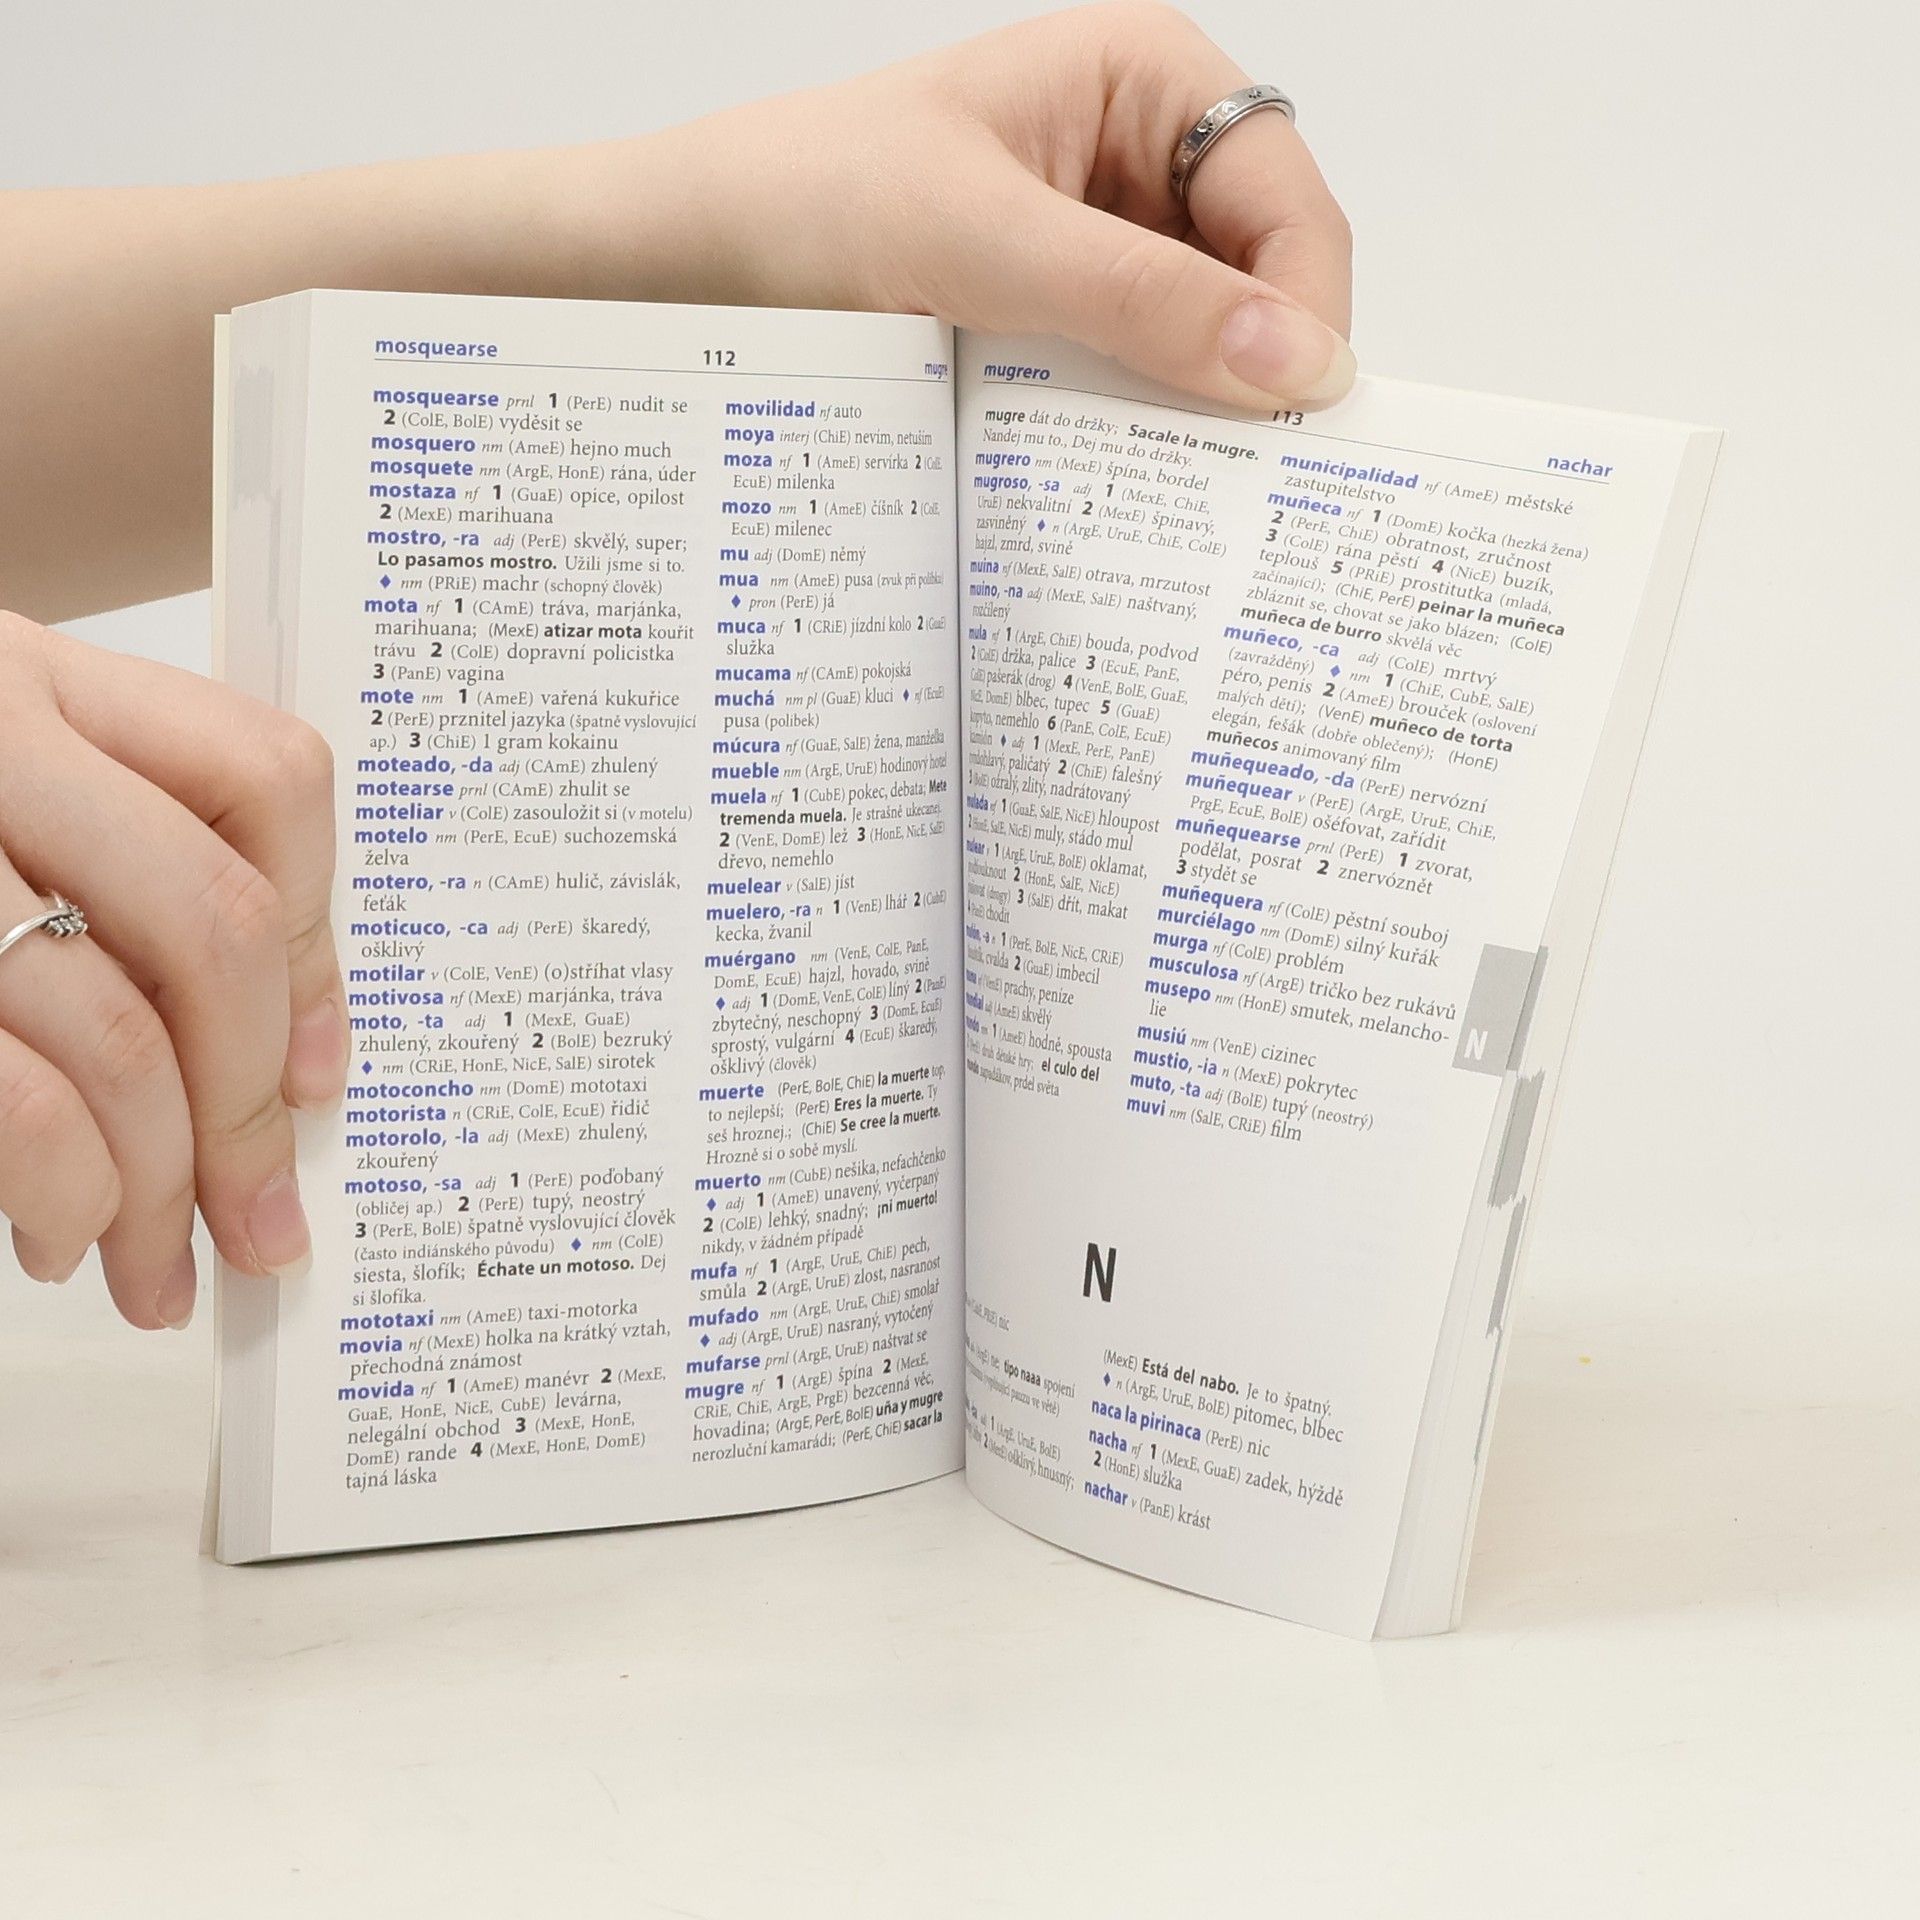 mosquearse
112
mugre
mosquearse prnl 1 (PerE) nudit se
2 (ColE, BolE) vyděsit se
mosquero nm (AmeE) hejno much
mosquete nm (ArgE, HonE) rána, úder
mostaza nf 1 (GuaE) opice, opilost
2 (MexE) marihuana
mostro, -ra adj (PerE) skvělý, super;
Lo pasamos mostro. Užili jsme si to.
♦ nm (PRiE) machr (schopný člověk)
mota nf 1 (CAmE) tráva, marjánka,
marihuana; (MexE) atizar mota kouřit
trávu 2 (ColE) dopravní policistka
3 (PanE) vagina
mote nm 1 (AmeE) vařená kukuřice
2 (PerE) prznitel jazyka (špatně vyslovující
ap.) 3 (ChiE) 1 gram kokainu
moteado, -da adj (CAmE) zhulený
motearse prnl (CAmE) zhulit se
moteliar v (ColE) zasouložit si (v motelu)
motelo nm (PerE, EcuE) suchozemská
želva
motero, -ra n (CAmE) hulič, závislák,
feťák
moticuco, -ca adj (PerE) škaredý,
ošklivý
motilar v (ColE, VenE) (o)stříhat vlasy
motivosa nf (MexE) marjánka, tráva
moto, -ta adj 1 (MexE, GuaE)
zhulený, zkouřený 2 (BolE) bezruký
♦ nm (CRiE, HonE, NicE, SalE) sirotek
motoconcho nm (DomE) mototaxi
motorista n (CRiE, ColE, EcuE) řidič
motorolo, -la adj (MexE) zhulený,
zkouřený
motoso, -sa adj 1 (PerE) poďobaný
(obličej ap.) 2 (PerE) tupý, neostrý
3 (PerE, BolE) špatně vyslovující člověk
(často indiánského původu) ♦ nm (ColE)
siesta, šlofík; Échate un motoso. Dej
si šlofíka.
mototaxi nm (AmeE) taxi-motorka
movia nf (MexE) holka na krátký vztah,
přechodná známost
movida nf 1 (AmeE) manévr 2 (MexE,
GuaE, HonE, NicE, CubE) levárna,
nelegální obchod 3 (MexE, HonE,
DomE) rande 4 (MexE, HonE, DomE)
tajná láska
movilidad nf auto
moya interj (ChiE) nevím, netuším
moza nf 1 (AmeE) servírka 2 (ColE,
EcuE) milenka
mozo nm 1 (AmeE) číšník 2 (ColE,
EcuE) milenec
mu adj (DomE) němý
mua nm (AmeE) pusa (zvuk při polibku)
♦ pron (PerE) já
muca nf 1 (CRiE) jízdní kolo 2 (GuaE)
služka
mucama nf (CAmE) pokojská
muchá nm pl (GuaE) kluci ♦ nf (EcuE)
pusa (polibek)
múcura nf (GuaE, SalE) žena, manželka
mueble nm (ArgE, UruE) hodinový hotel
muela nf 1 (CubE) pokec, debata; Mete
tremenda muela. Je strašně ukecanej.
2 (VenE, DomE) lež 3 (HonE, NicE, SalE)
dřevo, nemehlo
muelear v (SalE) jíst
muelero, -ra n 1 (VenE) lhář 2 (CubE)
kecka, žvanil
muérgano nm (VenE, ColE, PanE,
DomE, EcuE) hajzl, hovado, svině
♦ adj 1 (DomE, VenE, ColE) líný 2 (PanE)
zbytečný, neschopný 3 (DomE, EcuE)
sprostý, vulgární 4 (EcuE) škaredý,
ošklivý (člověk)
muerte (PerE, BolE, ChiE) la muerte top,
to nejlepší; (PerE) Eres la muerte. Ty
seš hroznej.; (ChiE) Se cree la muerte.
Hrozně si o sobě myslí.
muerto nm (CubE) nešika, nefachčenko
♦ adj 1 (AmeE) unavený, vyčerpaný
2 (ColE) lehký, snadný; ¡ni muerto!
nikdy, v žádném případě
mufa nf 1 (ArgE, UruE, ChiE) pech,
smůla 2 (ArgE, UruE) zlost, nasranost
mufado nm (ArgE, UruE, ChiE) smolař
♦ adj (ArgE, UruE) nasraný, vytočený
mufarse prnl (ArgE, UruE) naštvat se
mugre nf 1 (ArgE) špína 2 (MexE,
CRiE, ChiE, ArgE, PrgE) bezcenná věc,
hovadina; (ArgE, PerE, BolE) uña y mugre
nerozluční kamarádi; (PerE, ChiE) sacar la
mugrero
113
nachar
mugre dát do držky; Sacale la mugre.
Nandej mu to., Dej mu do držky.
mugrero nm (MexE) špína, bordel
mugroso, -sa adj 1 (MexE, ChiE,
UruE) nekvalitní 2 (MexE) špinavý,
zasviněný ♦ n (ArgE, UruE, ChiE, ColE)
hajzl, zmrd, svině
muina nf (MexE, SalE) otrava, mrzutost
muino, -na adj (MexE, SalE) naštvaný,
rozčílený
mula nf 1 (ArgE, ChiE) bouda, podvod
2 (ColE) držka, palice 3 (EcuE, PanE,
ColE) pašerák (drog) 4 (VenE, BolE, GuaE,
NicE, DomE) blbec, tupec 5 (GuaE)
kopyto, nemehlo 6 (PanE, ColE, EcuE)
kamión ♦ adj 1 (MexE, PerE, PanE)
paličatý 2 (ChiE) falešný
3 (BolE) ožralý, zlitý, nadrátovaný
mulada nf 1 (GuaE, SalE, NicE) hloupost
2 (HonE, SalE, NicE) muly, stádo mul
mulear v 1 (ArgE, UruE, BolE) oklamat,
2 (HonE, SalE, NicE)
(drogy) 3 (SalE) dřít, makat
4 (PanE) chodit
1 (PerE, BolE, NicE, CRiE)
2 (GuaE) imbecil
nf (VenE) prachy, peníze
mundial adj (AmeE) skvělý
mundo nm 1 (AmeE) hodně, spousta
druh dětské hry; el culo del
mundo zapadákov, prdel světa
municipalidad nf (AmeE) městské
zastupitelstvo
muñeca nf 1 (DomE) kočka (hezká žena)
2 (PerE, ChiE) obratnost, zručnost
3 (ColE) rána pěstí 4 (NicE) buzík,
teplouš 5 (PRiE) prostitutka (mladá,
začínající); (ChiE, PerE) peinar la muñeca
zbláznit se, chovat se jako blázen; (ColE)
muñeca de burro skvělá věc
muñeco, -ca adj (ColE) mrtvý
(zavražděný) ♦ nm 1 (ChiE, CubE, SalE)
péro, penis 2 (AmeE) brouček (oslovení
malých dětí); (VenE) muñeco de torta
elegán, fešák (dobře oblečený); (HonE)
muñecos animovaný film
muñequeado, -da (PerE) nervózní
muñequear v (PerE) (ArgE, UruE, ChiE,
PrgE, EcuE, BolE) ošéfovat, zařídit
muñequearse prnl (PerE) 1 zvorat,
podělat, posrat 2 znervóznět
3 stydět se
muñequera nf (ColE) pěstní souboj
murciélago nm (DomE) silný kuřák
murga nf (ColE) problém
musculosa nf (ArgE) tričko bez rukávů
musepo nm (HonE) smutek, melancho-
lie
musiú nm (VenE) cizinec
mustio, -ia n (MexE) pokrytec
muto, -ta adj (BolE) tupý (neostrý)
muvi nm (SalE, CRiE) film
N
N
nic
(ArgE) ne; tipo naaa spojení
pauzu ve větě)
adj 1 (ArgE, UruE, BolE)
2 (MexE) ošklivý, hnusný;
(MexE) Está del nabo. Je to špatný.
♦ n (ArgE, UruE, BolE) pitomec, blbec
naca la pirinaca (PerE) nic
nacha nf 1 (MexE, GuaE) zadek, hýždě
2 (HonE) služka
nachar v (PanE) krást